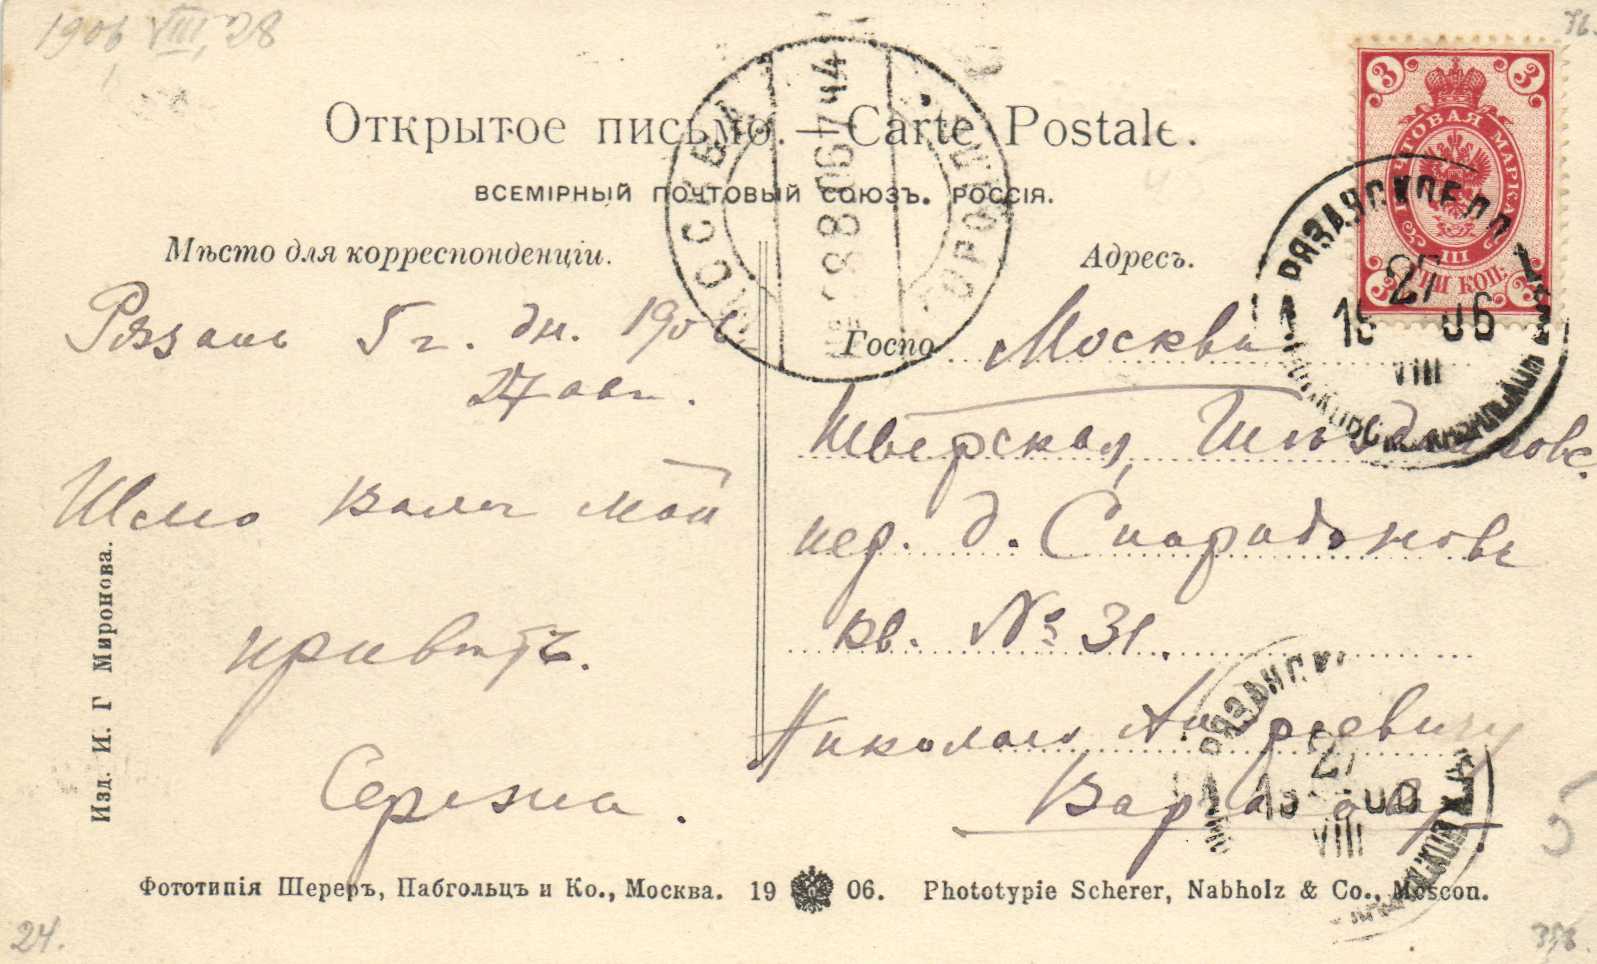 1906 VIII 28
Открытое письмо. — Carte Postale.
ВСЕМІРНЫЙ ПОЧТОВЫЙ СОЮЗЪ. РОССІЯ.
Мѣсто для корреспонденціи.
Адресъ.
Рязань 5 г. дн. 1906
27 авг.
Шлю Вамъ мой
привѣтъ.
Сережа.
Госпо
Москва
Тверская,
пер. д. Спиридонова
кв. № 31.
Николаю Андреевичу
МОСКВА
28 8 06
ПОЧТОВАЯ МАРКА
3 3
III
ТРИ КОП.
3 3
РЯЗАНСК
27
19 06
VIII
1 1
РЯЗАНСК
27
VIII
Изд. И. Г Миронова.
Фототипія Шереръ, Набгольцъ и Ко., Москва. 19 06. Phototypie Scherer, Nabholz & Co., Moscou.
24.
5